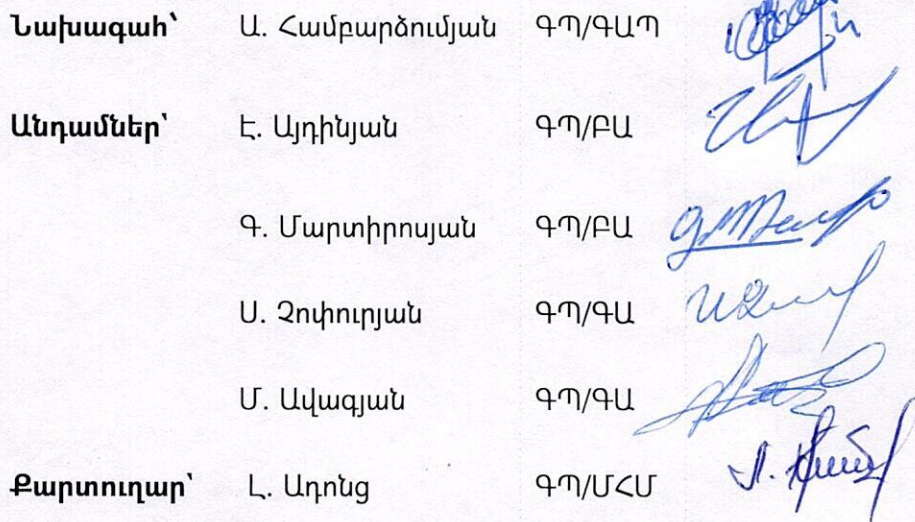 Նախագահ՝ Ա. Համբարձումյան ԳՊ/ԳԱՊ
Անդամներ՝ Է. Այդինյան ԳՊ/ԲԱ
Գ. Մարտիրոսյան ԳՊ/ԲԱ
Ս. Չոփուրյան ԳՊ/ԳԱ
Մ. Ավագյան ԳՊ/ԳԱ
Քարտուղար՝ Լ. Ադոնց ԳՊ/ՄՀՄ